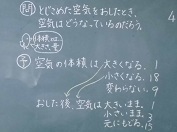 問 とじこめた空気をおしたとき、
空気はどうなっているのだろう。
体積は
大きさ、量
4
予 空気の体積は 大きくなる。 1
小さくなる。 18
変わらない。 9
おした後、空気は 大きいまま。 1
小さいまま。 3
元にもどる。 15